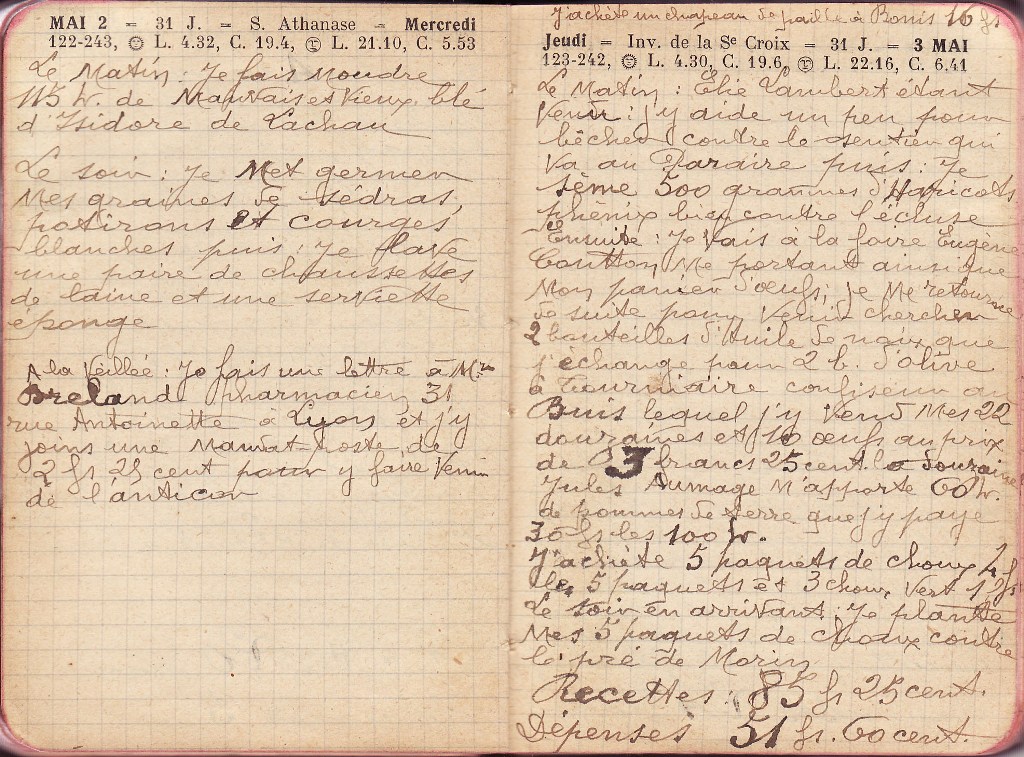 MAI 2 = 31 J. = S. Athanase = Mercredi
122-243, L. 4.32, C. 19.4, L. 21.10, C. 5.53
Le Matin : Je fais Moudre
115 k. de Mauvais et Vieux blé
d'Isidore de Lachau
Le soir : Je Met germer
Mes graines de sédras,
potirons et courges
blanches puis : Je lave
une paire de chaussettes
de laine et une serviette
éponge
A la Veillée : Je fais une lettre à Mr
Breland pharmacien 31
rue Antoinette à Lyon et j'y
joins une Mandat-poste de
2 fs 25 cent pour y faire Venir
de l'anticor
J'achète un chapeau de paille à Bonis 16 fs
Jeudi = Inv. de la Se Croix = 31 J. = 3 MAI
123-242, L. 4.30, C. 19.6, L. 22.16, C. 6.41
Le Matin : Élie Lambert étant
Venir : j'y aide un peu pour
bêcher contre le sentier qui
Va au puis : Je
sème 500 grammes d'Haricots
phénix bien contre l'écluse
Ensuite : Je Vais à la foire Eugène
Coutton Me portant ainsi que
Mon panier d'œufs ; je Me retourne
de suite pour Venir chercher
2 bouteilles d'Huile de noix que
j'échange pour 2 b. d'olive
à Tourniaire confiseur au
Buis lequel j'y Vend Mes 22
douzaines et 10 œufs au prix
de 3 francs 25 cent. la douzaine
Jules Aumage M'apporte 60 k.
de pommes de terre que j'y paye
30 fs les 100 k.
J'achète 5 paquets de choux 2 fs
les 5 paquets et 3 choux Vert 1 fs
Le soir en arrivant : Je plante
Mes 5 paquets de choux contre
le pré de Morin
Recettes : 85 fs 25 cent.
Dépenses 51 fs. 60 cent.